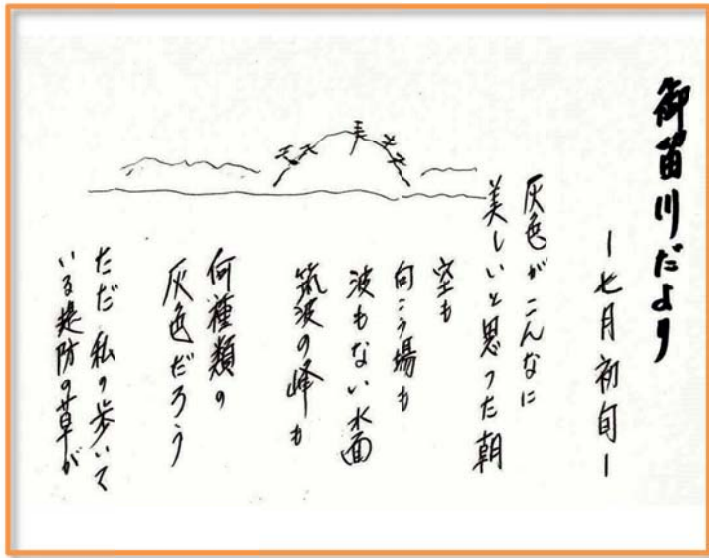 御笛川だより
ー七月初旬ー
灰色がこんなに
美しいと思った朝
空も
向こう場も
波もない水面
筑波の峰も
何種類の
灰色だろう
ただ私の歩いて
いる堤防の草が